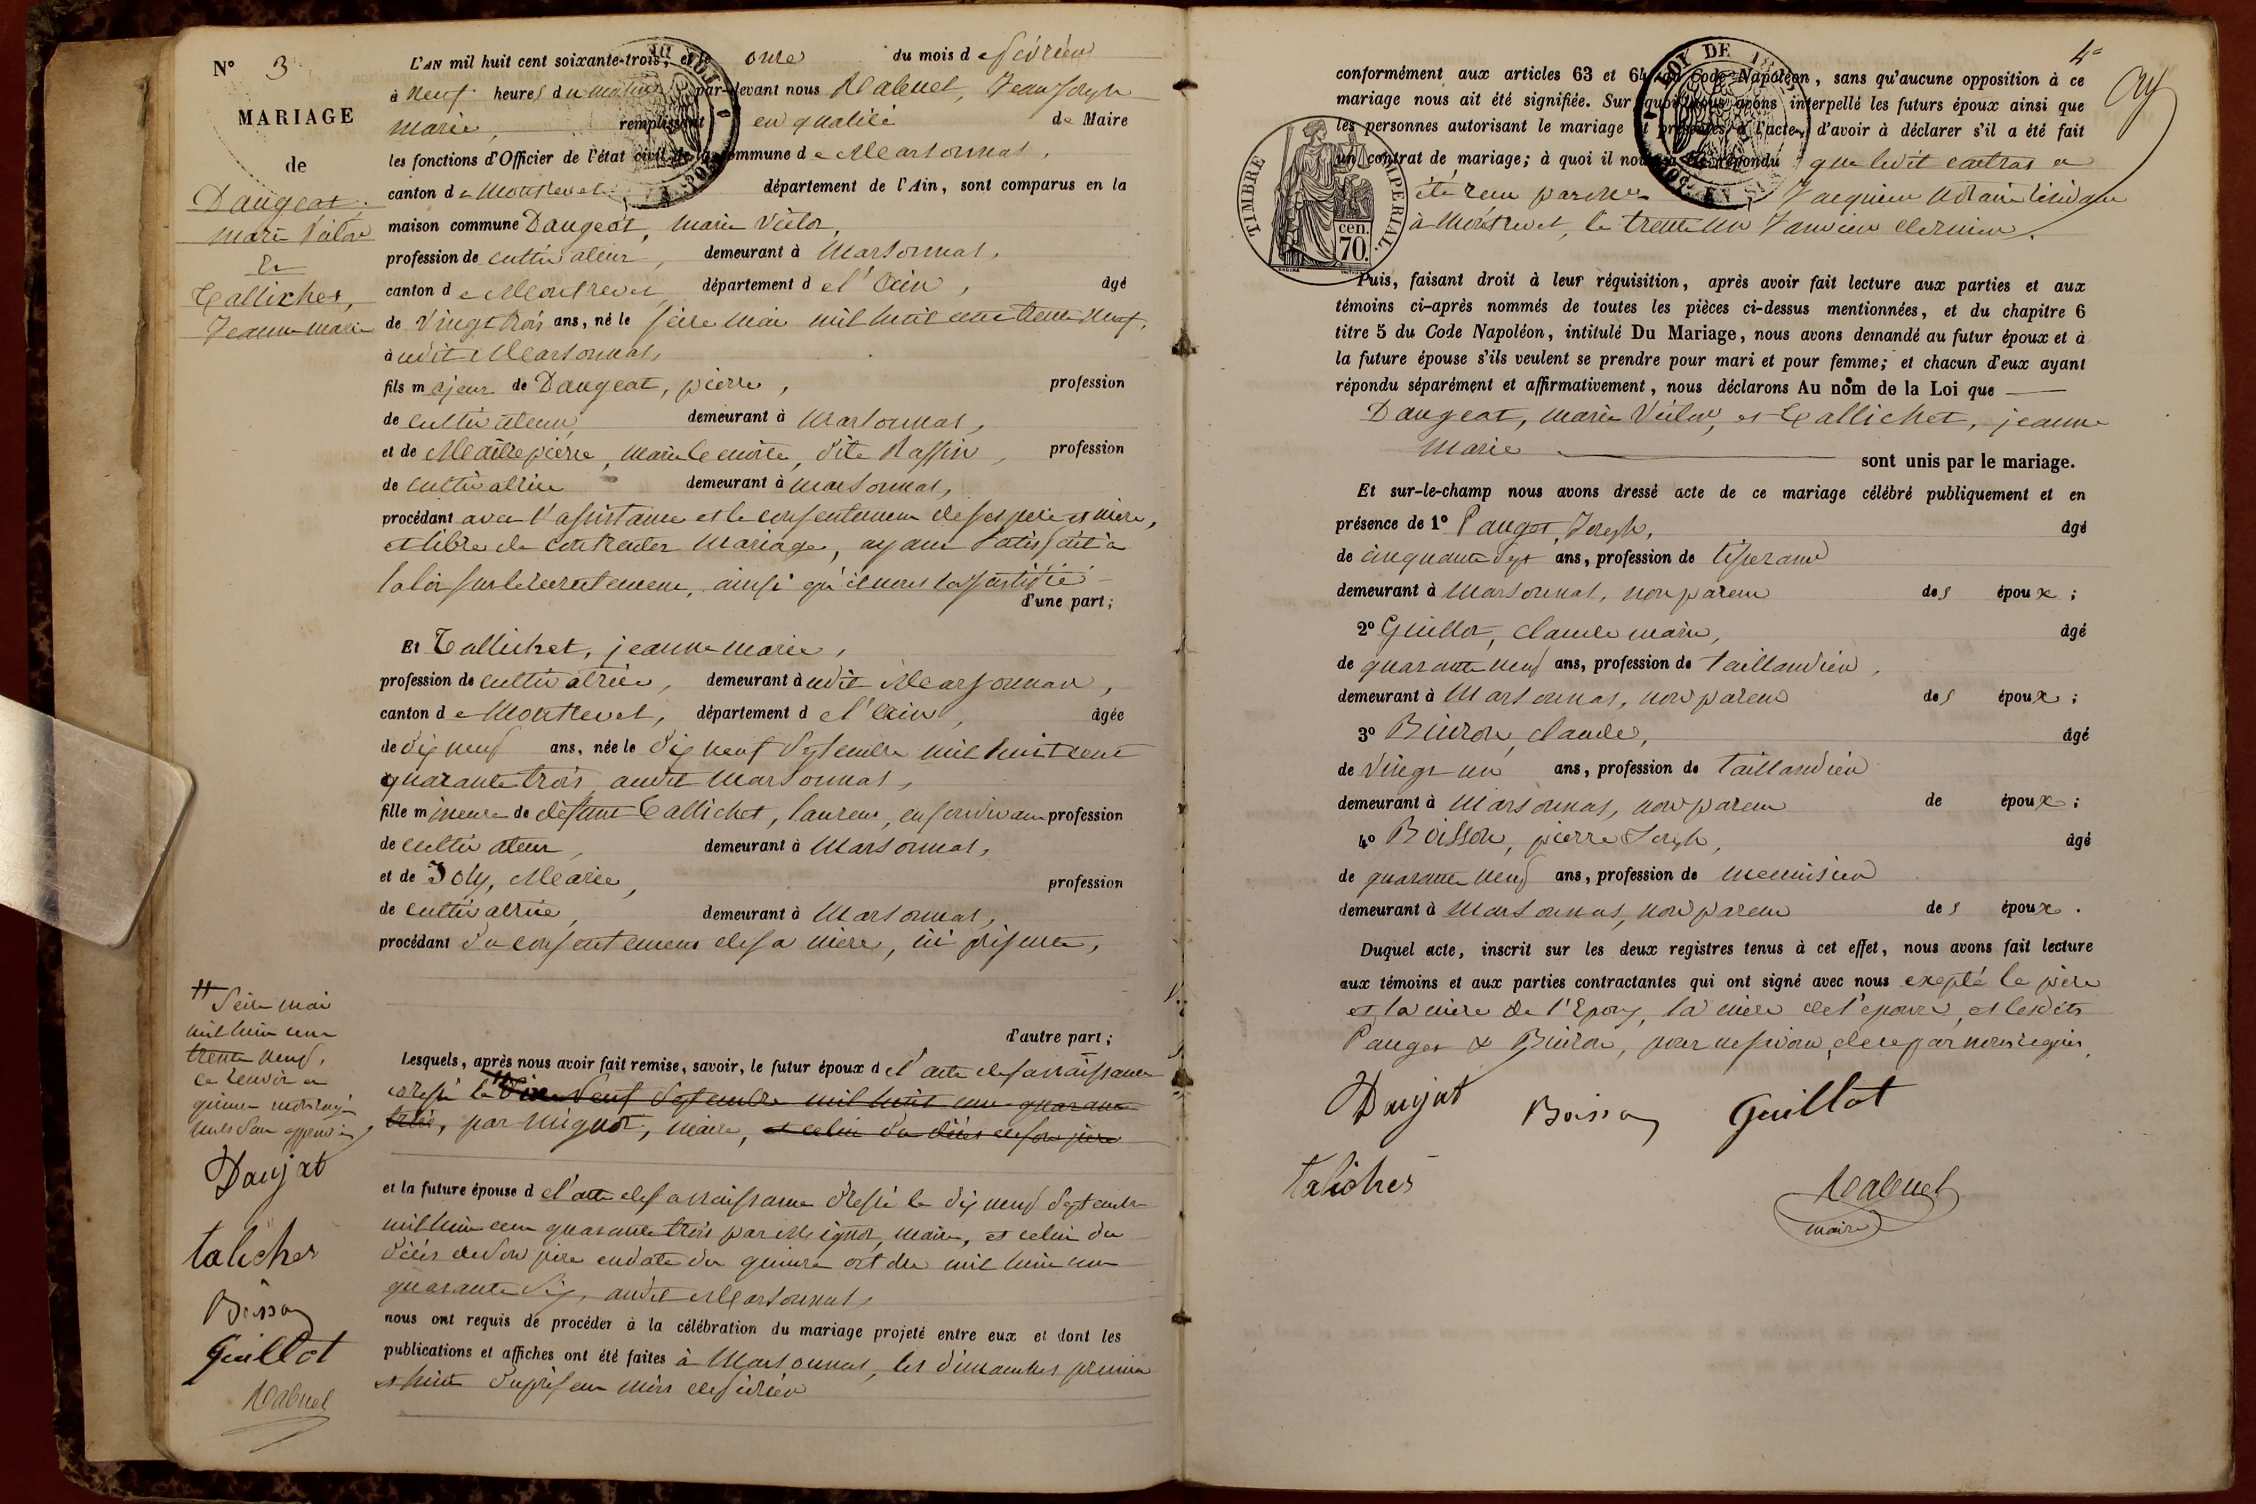 N° 3
MARIAGE
de
Daugeat.
marie Victor
Et
Tallichet,
Jeanne marie
L'AN mil huit cent soixante-trois, et le onze du mois de février
à neuf heures du matin par-devant nous Rabuel, Jean Joseph
marie, remplissant en qualité de Maire
les fonctions d'Officier de l'état civil de la commune de Marsonnas,
canton de Montrevel département de l'Ain, sont comparus en la
maison commune Daugeat, marie Victor,
profession de cultivateur, demeurant à Marsonnas,
canton de Montrevel département de l'Ain, âgé
de vingt trois ans, né le seize mai mil huit cent trente neuf,
audit Marsonnas,
fils majeur de Daugeat, pierre, profession
de cultivateur demeurant à Marsonnas,
et de Maitrepierre, marie benoite, dite Raffin, profession
de cultivatrice demeurant à Marsonnas,
procédant avec l'assistance et le consentement de ses père et mère,
et libre de contracter mariage, ayant satisfait à
la loi sur le recrutement, ainsi qu'il nous l'a justifié
d'une part;
Et Tallichet, jeanne marie,
profession de cultivatrice, demeurant audit Marsonnas,
canton de Montrevel, département de l'Ain, âgée
de dix neuf ans, née le dix neuf septembre mil huit cent
quarante trois audit Marsonnas,
fille mineure de défunt Tallichet, laurent, en son vivant profession
de cultivateur, demeurant à Marsonnas,
et de Joly, Marie, profession
de cultivatrice, demeurant à Marsonnas,
procédant du consentement de sa mère, ici présente,
d'autre part;
Lesquels, après nous avoir fait remise, savoir, le futur époux de l'acte de sa naissance
dressé le dix neuf septembre mil huit cent quarante
trois, par Mignot, maire, et celui du décès de son père
seize mai
mil huit cent
trente neuf,
ce renvoi et
quinze mots rayés
nuls sont approuvés
Daujat
talichet
Boisson
Guillot
Rabuel
et la future épouse de l'acte de sa naissance dressé le dix neuf septembre
mil huit cent quarante trois par Mignot, maire, et celui du
décès de son père en date du quinze octobre mil huit cent
quarante six, audit Marsonnas,
nous ont requis de procéder à la célébration du mariage projeté entre eux et dont les
publications et affiches ont été faites à Marsonnas, les dimanches premier
et huit du présent mois de février
4e
conformément aux articles 63 et 64 du Code Napoléon, sans qu'aucune opposition à ce
mariage nous ait été signifiée. Sur quoi nous avons interpellé les futurs époux ainsi que
les personnes autorisant le mariage et présentes à l'acte, d'avoir à déclarer s'il a été fait
un contrat de mariage; à quoi il nous a été répondu que ledit contrat a
été reçu par Me Jacquier notaire résidant
à Montrevel, le trente un Janvier dernier.
TIMBRE IMPERIAL.
cen.
70.
Puis, faisant droit à leur réquisition, après avoir fait lecture aux parties et aux
témoins ci-après nommés de toutes les pièces ci-dessus mentionnées, et du chapitre 6
titre 5 du Code Napoléon, intitulé Du Mariage, nous avons demandé au futur époux et à
la future épouse s'ils veulent se prendre pour mari et pour femme; et chacun d'eux ayant
répondu séparément et affirmativement, nous déclarons Au nom de la Loi que
Daugeat, marie Victor, et Tallichet, jeanne
Marie
sont unis par le mariage.
Et sur-le-champ nous avons dressé acte de ce mariage célébré publiquement et en
présence de 1° Pauget, Joseph, âgé
de cinquante sept ans, profession de tisserand
demeurant à Marsonnas, non parent des époux;
2° Guillot, claude marie, âgé
de quarante neuf ans, profession de taillandier,
demeurant à Marsonnas, non parent des époux;
3° Buiron, claude, âgé
de vingt un ans, profession de taillandier
demeurant à Marsonnas, non parent de époux;
4° Boisson, pierre Joseph, âgé
de quarante neuf ans, profession de menuisier
demeurant à Marsonnas, non parent des époux.
Duquel acte, inscrit sur les deux registres tenus à cet effet, nous avons fait lecture
aux témoins et aux parties contractantes qui ont signé avec nous excepté le père
et la mère de l'Epoux, la mère de l'épouse, et lesdits
Pauget & Buiron, pour ne savoir, de ce par nous requis,
Daujat Boisson Guillot
talichet
Rabuel
maire